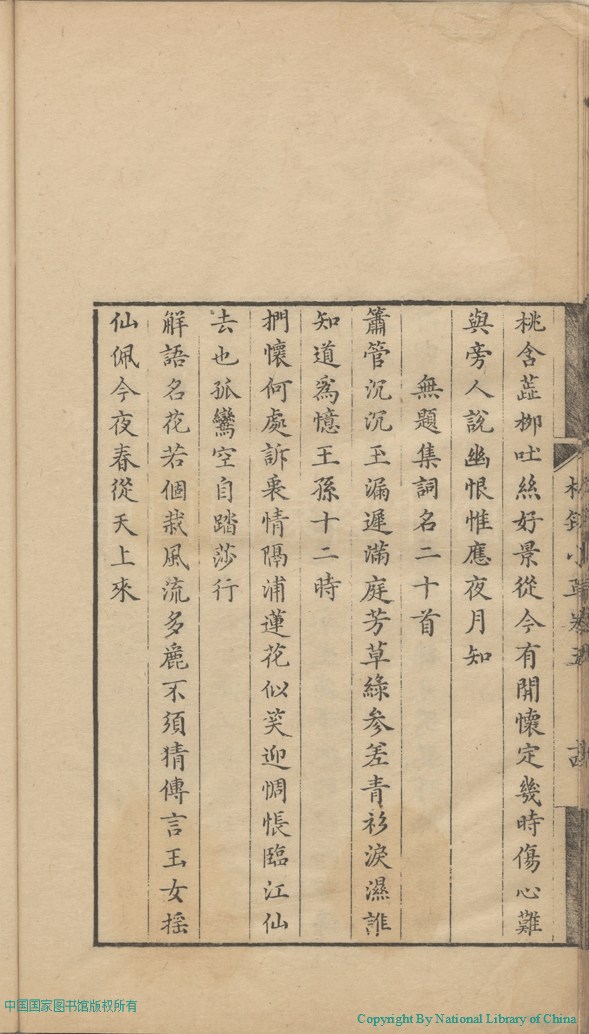 桃含蕋柳吐絲好景從今有開懷定幾時傷心難
與旁人說幽恨惟應夜月知
無題集詞名二十首
簫管沉沉玉漏遲滿庭芳草綠參差青衫淚濕誰
知道爲憶王孫十二時
捫懷何處訴衷情隔浦蓮花似笑迎惆悵臨江仙
去也孤鸞空自踏莎行
解語名花若個栽風流多麗不須猜傳言玉女搖
仙佩今夜春從天上來
中国国家图书馆版权所有
Copyright By National Library of China